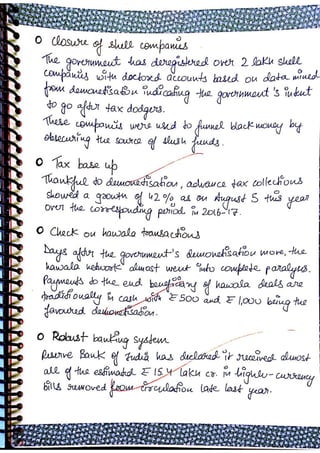 O Closure of shell companies
The government has deregistered over 2 lakh shell
companies with doctored accounts based on data mined
from demonetisation indicating the government's intent
to go after tax dodgers.
These companies were used to funnel black money by
obsecuring the source of slush funds.
O Tax base up
Thankful to demonetisation, advance tax collections
showed a growth of 42% as on August 5 this year
over the corresponding period in 2016-17.
O Check on hawala transactions
Days after the government's demonetisation move, the
hawala network almost went into complete paralyses.
Payments to the end beneficiary of hawala deals are
traditionally in cash with ₹500 and ₹1,000 being the
favoured demonetisation.
O Robust banking system
Reserve Bank of India has declared it received almost
all of the estimated ₹15.4 lakh cr. in higher-currency
bills removed from circulation late last year.